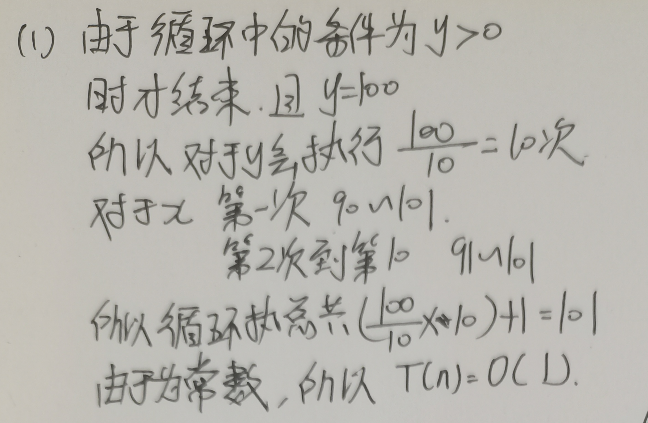 (1) 由于循环中的条件为y>0
时才结束.且 y=100
所以对于y会执行 100/10 = 10次.
对于x 第一次 90~101.
第2次到第10 91~101
所以循环执总共(100/10 × 10)+1=101
由于为常数,所以 T(n)=O(1).